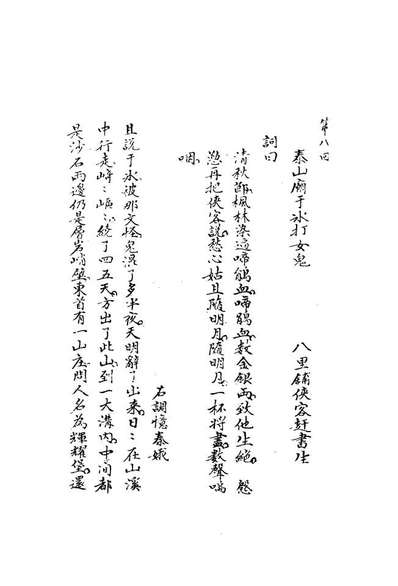 第八回
泰山廟于冰打女鬼　八里鋪俠客赶書生
詞曰
清秋節楓林染遍啼鵑血啼鵑血數金銀兩致他生絕
再把俠客說愁心姑且隨明月隨明月一杯將盡數聲嗚
咽
右調憶秦娥
且說于冰被那文鬼混了多半夜天明辭了出來日〻在山溪
中行走崎〻嶇〻繞了四五天方出了此山到一大溝內中間都
是沙石兩邊仍是層岩峭壁東首有一山庄問人名為輝耀堡還